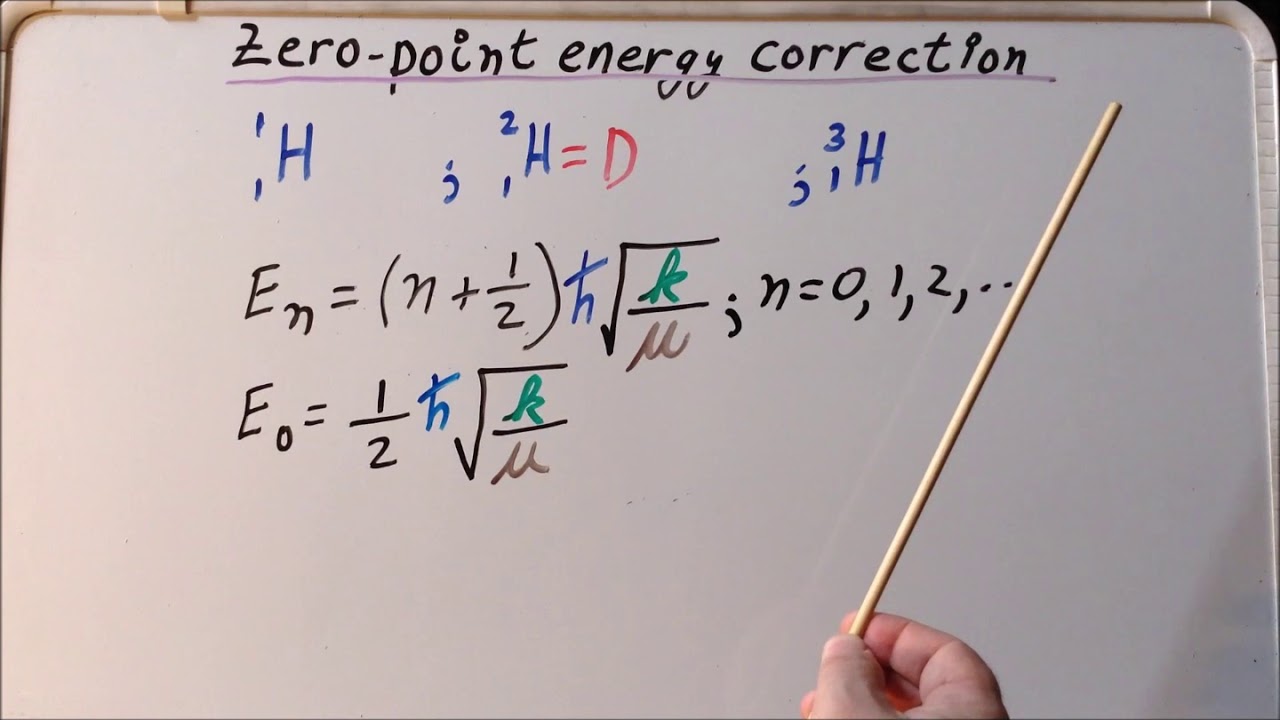 Zero-point energy correction
¹₁H ; ²₁H = D ; ³₁H
Eₙ = (n + 1/2) ħ √(k/μ) ; n = 0, 1, 2, ...
E₀ = 1/2 ħ √(k/μ)